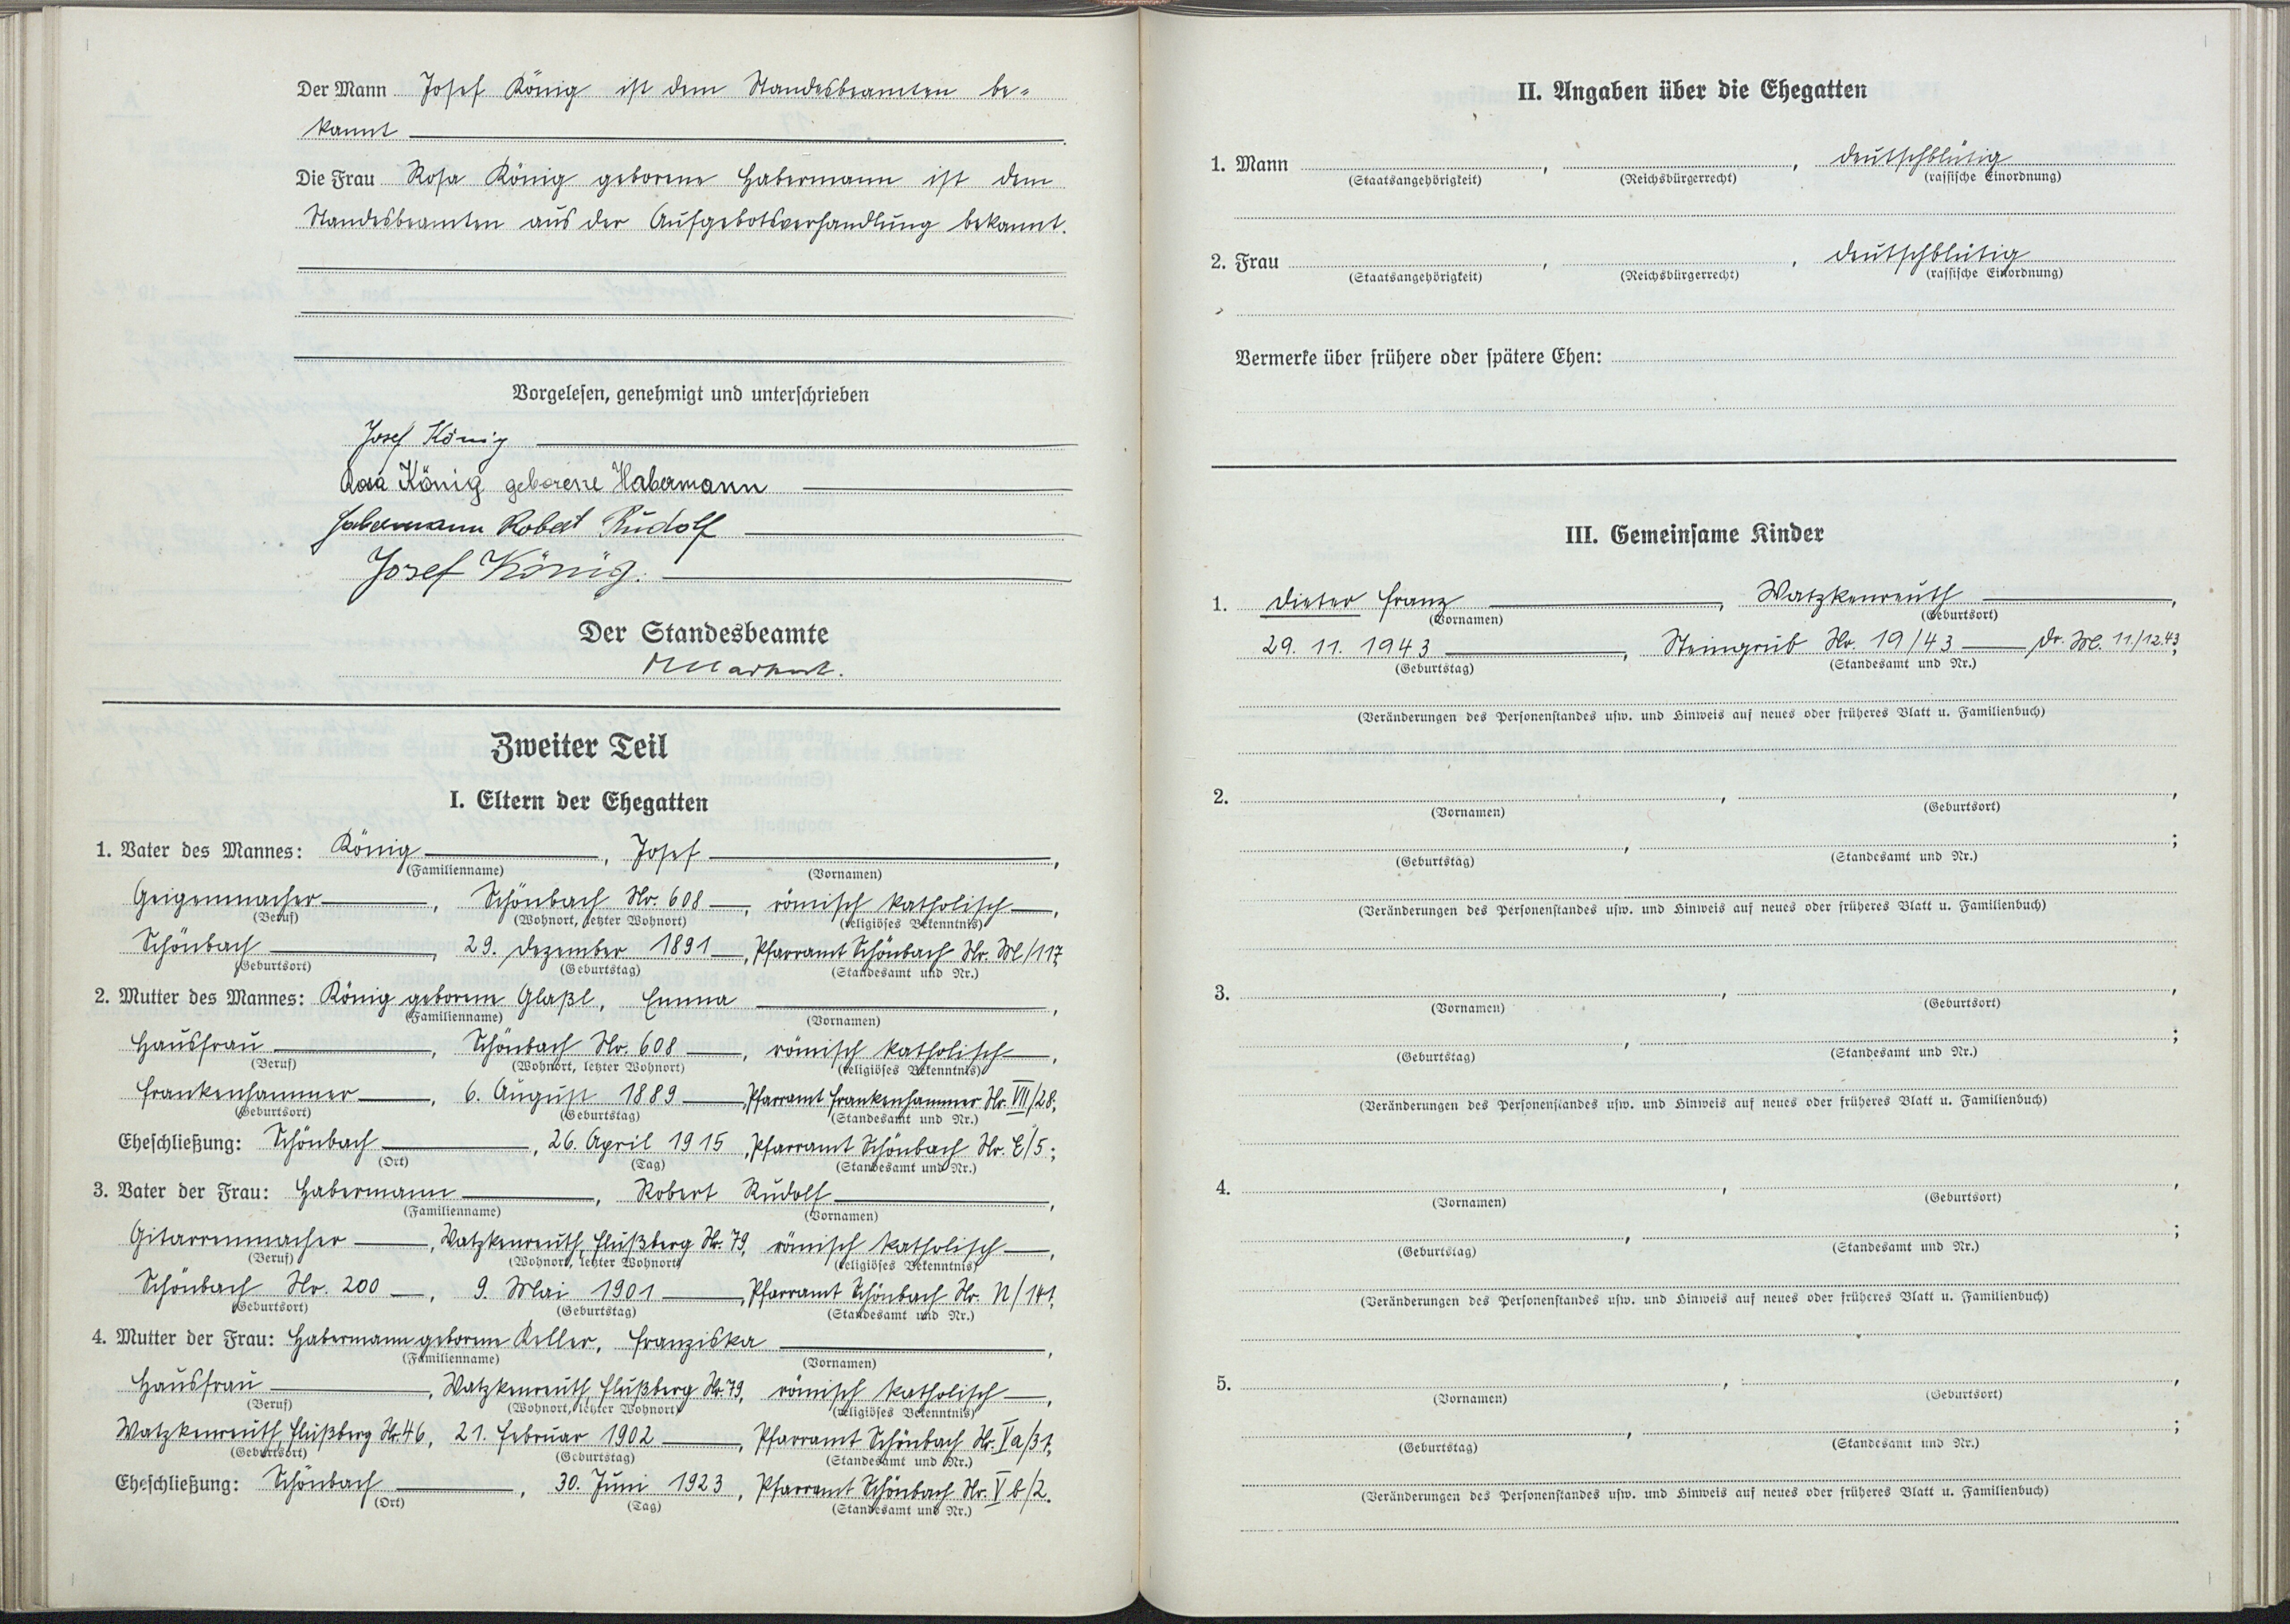 Der Mann Josef König ist dem Standesbeamten be-
kannt
Die Frau Rosa König geborene Habermann ist dem
Standesbeamten aus der Aufgebotsverhandlung bekannt.
Vorgelesen, genehmigt und unterschrieben
Josef König
Rosa König geborene Habermann
Habermann Robert Rudolf
Josef König.
Der Standesbeamte
Zweiter Teil
I. Eltern der Ehegatten
1. Vater des Mannes: König, Josef,
(Familienname) (Vornamen)
Geigenmacher, Schönbach Nr. 608, römisch katholisch,
(Beruf) (Wohnort, letzter Wohnort) (religiöses Bekenntnis)
Schönbach, 29. Dezember 1891, Pfarramt Schönbach Nr. M/117,
(Geburtsort) (Geburtstag) (Standesamt und Nr.)
2. Mutter des Mannes: König geborene Glaßl, Emma,
(Familienname) (Vornamen)
Hausfrau, Schönbach Nr. 608, römisch katholisch,
(Beruf) (Wohnort, letzter Wohnort) (religiöses Bekenntnis)
Frankenhammer, 6. August 1889, Pfarramt Frankenhammer Nr. VII/28,
(Geburtsort) (Geburtstag) (Standesamt und Nr.)
Eheschließung: Schönbach, 26. April 1915, Pfarramt Schönbach Nr. E/5;
(Ort) (Tag) (Standesamt und Nr.)
3. Vater der Frau: Habermann, Robert Rudolf,
(Familienname) (Vornamen)
Gitarrenmacher, Watzkenreuth, Flußberg Nr. 79, römisch katholisch,
(Beruf) (Wohnort, letzter Wohnort) (religiöses Bekenntnis)
Schönbach Nr. 200, 9. Mai 1901, Pfarramt Schönbach Nr. N/141,
(Geburtsort) (Geburtstag) (Standesamt und Nr.)
4. Mutter der Frau: Habermann geborene Keller, Franziska,
(Familienname) (Vornamen)
Hausfrau, Watzkenreuth, Flußberg Nr. 79, römisch katholisch,
(Beruf) (Wohnort, letzter Wohnort) (religiöses Bekenntnis)
Watzkenreuth, Flußberg Nr. 46, 21. Februar 1902, Pfarramt Schönbach Nr. Va/31,
(Geburtsort) (Geburtstag) (Standesamt und Nr.)
Eheschließung: Schönbach, 30. Juni 1923, Pfarramt Schönbach Nr. Vb/2.
(Ort) (Tag) (Standesamt und Nr.)
II. Angaben über die Ehegatten
1. Mann , , deutschblütig
(Staatsangehörigkeit) (Reichsbürgerrecht) (rassische Einordnung)
2. Frau , , deutschblütig
(Staatsangehörigkeit) (Reichsbürgerrecht) (rassische Einordnung)
Vermerke über frühere oder spätere Ehen:
III. Gemeinsame Kinder
1. Dieter Franz, Watzkenreuth,
(Vornamen) (Geburtsort)
29. 11. 1943, Steingrub Nr. 19/43 Dr. M. 11./12.43;
(Geburtstag) (Standesamt und Nr.)
(Veränderungen des Personenstandes usw. und Hinweis auf neues oder früheres Blatt u. Familienbuch)
2. , ,
(Vornamen) (Geburtsort)
, ;
(Geburtstag) (Standesamt und Nr.)
(Veränderungen des Personenstandes usw. und Hinweis auf neues oder früheres Blatt u. Familienbuch)
3. , ,
(Vornamen) (Geburtsort)
, ;
(Geburtstag) (Standesamt und Nr.)
(Veränderungen des Personenstandes usw. und Hinweis auf neues oder früheres Blatt u. Familienbuch)
4. , ,
(Vornamen) (Geburtsort)
, ;
(Geburtstag) (Standesamt und Nr.)
(Veränderungen des Personenstandes usw. und Hinweis auf neues oder früheres Blatt u. Familienbuch)
5. , ,
(Vornamen) (Geburtsort)
, ;
(Geburtstag) (Standesamt und Nr.)
(Veränderungen des Personenstandes usw. und Hinweis auf neues oder früheres Blatt u. Familienbuch)